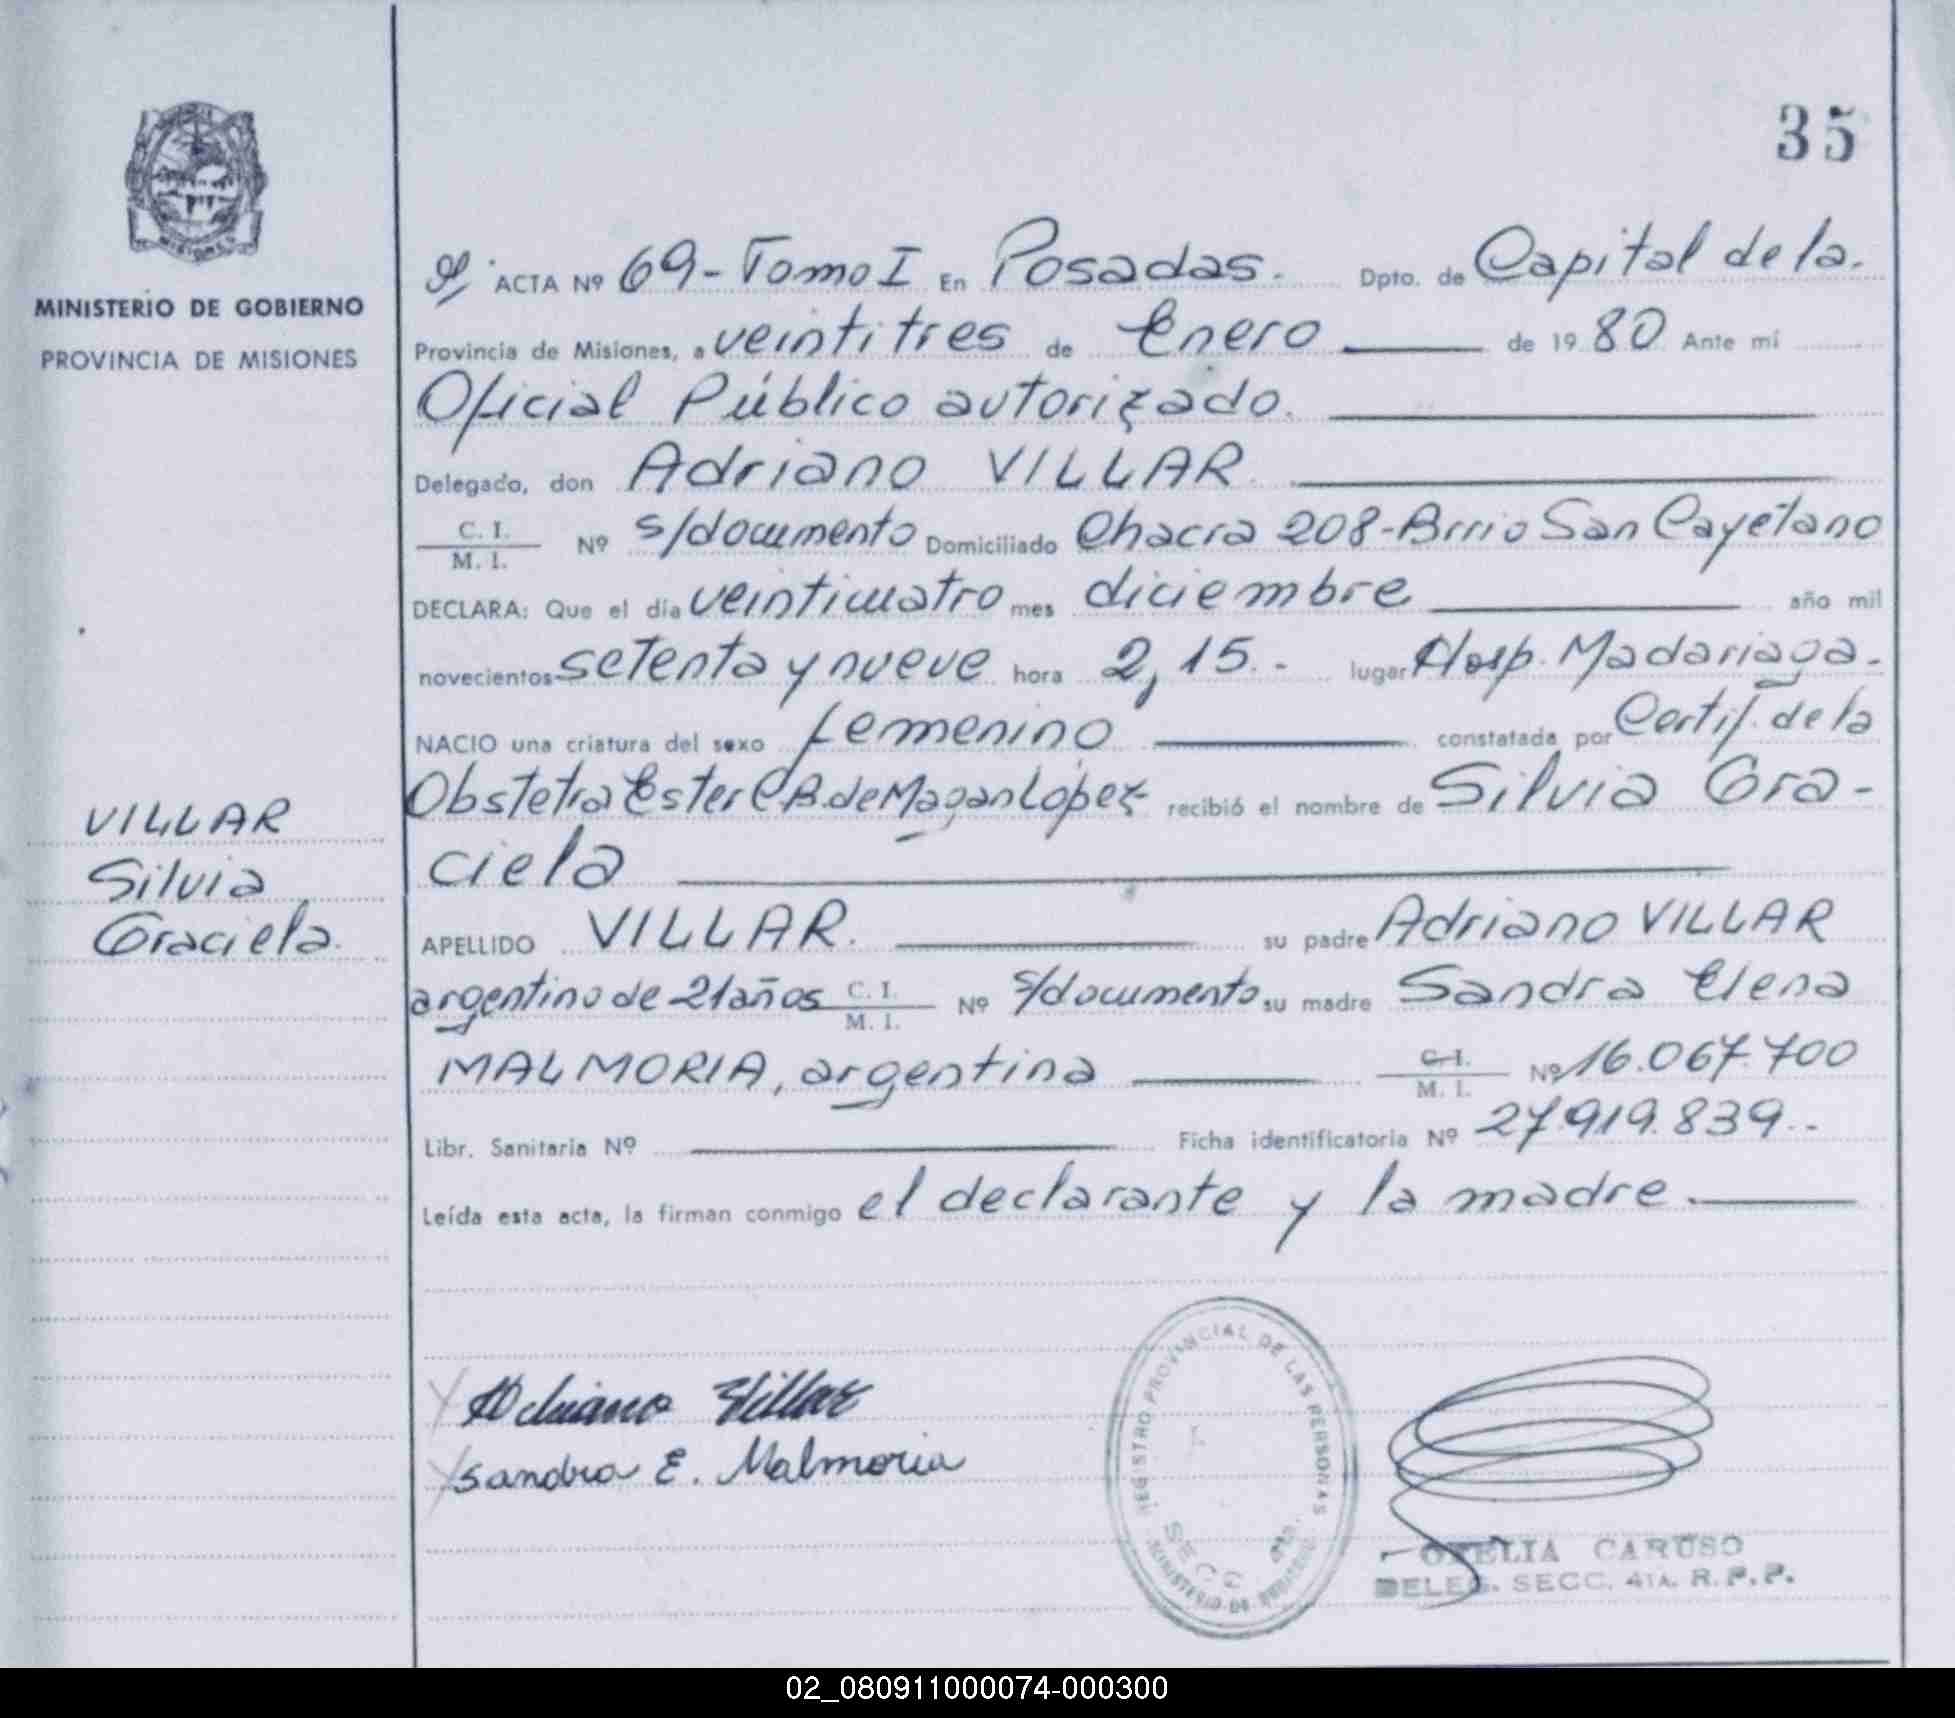 35
MINISTERIO DE GOBIERNO
PROVINCIA DE MISIONES
ACTA Nº 69 - Tomo I En Posadas. Dpto. de Capital de la.
Provincia de Misiones, a veintitres de Enero de 1980 Ante mí
Oficial Público autorizado.
Delegado, don Adriano VILLAR.
C. I.
M. I. Nº s/documento Domiciliado Chacra 208 - Brrio San Cayetano
DECLARA: Que el día veinticuatro mes diciembre año mil
novecientos setenta y nueve hora 2,15.- lugar Hosp. Madariaga.
NACIO una criatura del sexo femenino constatada por Certif. de la
Obstetra Ester C.B. de Magan López recibió el nombre de Silvia Gra-
ciela
APELLIDO VILLAR. su padre Adriano VILLAR
argentino de 21 años C. I.
M. I. Nº s/documento su madre Sandra Elena
MALMORIA, argentina C. I.
M. I. Nº 16.067.700
Libr. Sanitaria Nº Ficha identificatoria Nº 27.919.839.-
Leída esta acta, la firman conmigo el declarante y la madre.
VILLAR
Silvia
Graciela.
Adriano Villar
Sandra E. Malmoria
REGISTRO PROVINCIAL DE LAS PERSONAS
SECC
MINISTERIO DE GOBIERNO
OFELIA CARUSO
DELEG. SECC. 4TA. R.P.P.
02_080911000074-000300